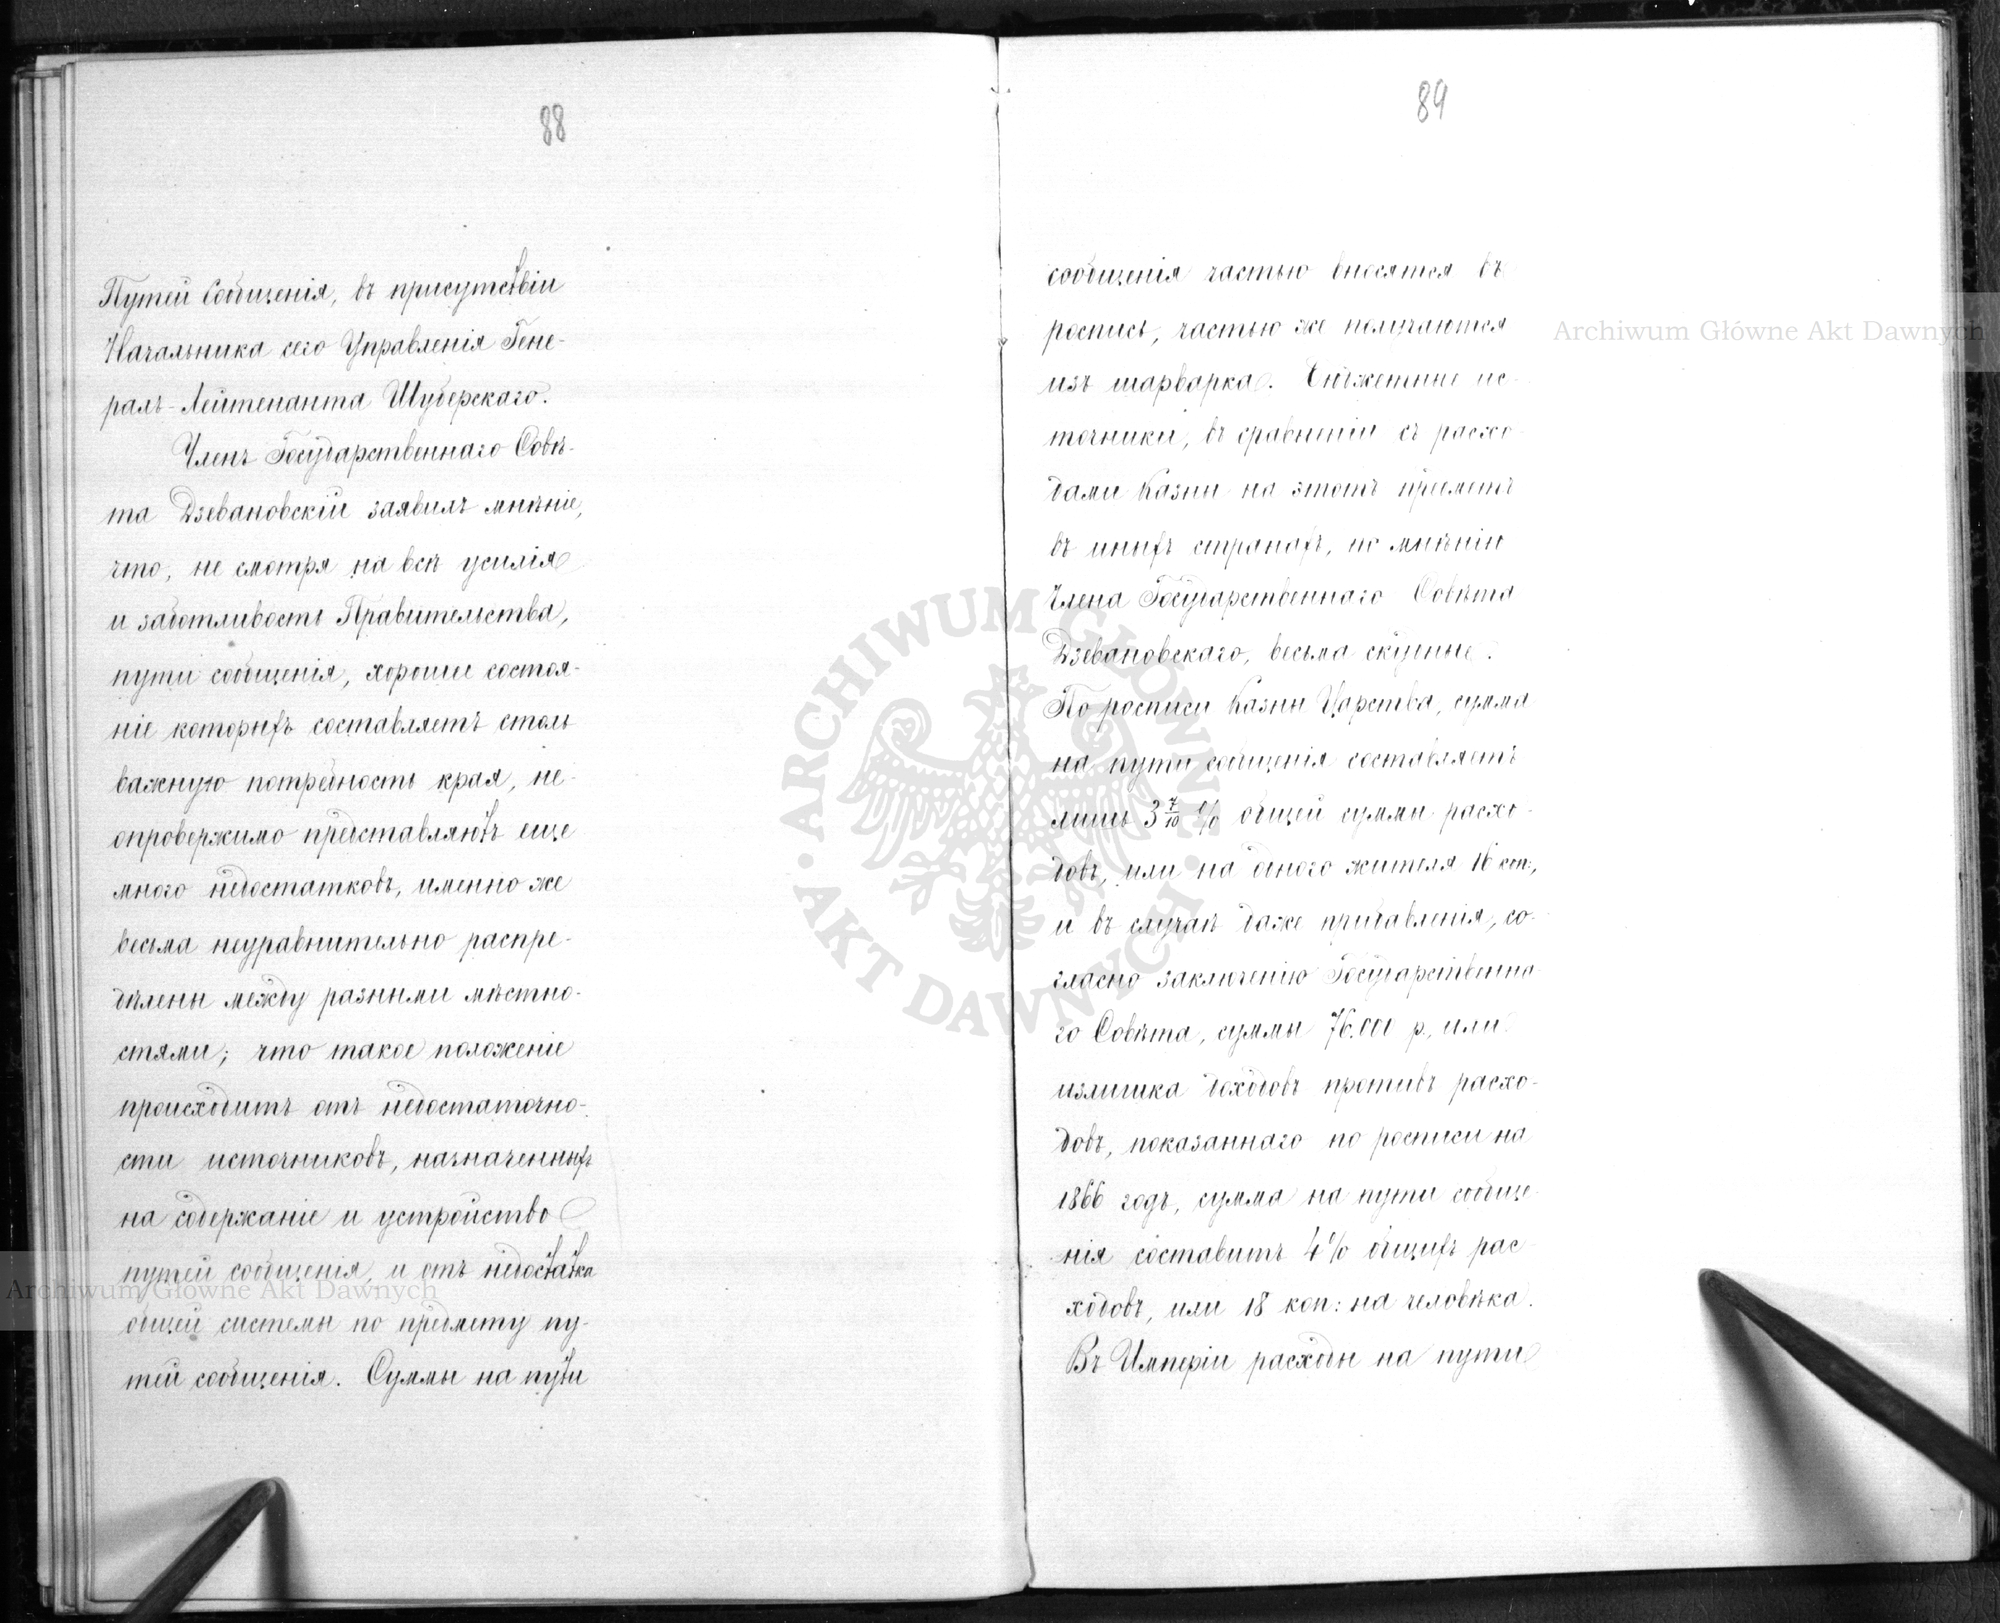 88
Путей Сообщенія, въ присутствіи
Начальника сего Управленія Гене-
ралъ-Лейтенанта Шуберскаго.
Членъ Государственнаго Совѣ-
та Дзевановскій заявилъ мнѣніе,
что, не смотря на всѣ усилія
и заботливость Правительства,
пути сообщенія, хорошее состоя-
ніе которыхъ составляетъ столь
важную потребность края, не-
опровержимо представляютъ еще
много недостатковъ, именно же
весьма неуравнительно распре-
дѣлены между разными мѣстно-
стями; что такое положеніе
происходитъ отъ недостаточно-
сти источниковъ, назначенныхъ
на содержаніе и устройство
путей сообщенія, и отъ недостатка
общей системы по предмету пу-
тей сообщенія. Суммы на пути
89
сообщенія частью вносятся въ
роспись, частью же получаются
изъ шарварка. Бюджетные ис-
точники, въ сравненіи съ расхо-
дами Казны на этотъ предметъ
въ иныхъ странахъ, по мнѣнію
Члена Государственнаго Совѣта
Дзевановскаго, весьма скудные.
По росписи Казны Царства, сумма
на пути сообщенія составляетъ
лишь 3 7/10 % общей суммы расхо-
довъ, или на одного жителя 16 коп:,
и въ случаѣ даже прибавленія, со-
гласно заключенію Государственна-
го Совѣта, суммы 76.000 р., или
излишка доходовъ противъ расхо-
довъ, показаннаго по росписи на
1866 годъ, сумма на пути сообще-
нія составитъ 4% общихъ рас-
ходовъ, или 18 коп: на человѣка.
Въ Имперіи расходы на пути
Archiwum Główne Akt Dawnych
Archiwum Główne Akt Dawnych
ARCHIWUM GŁÓWNE · AKT DAWNYCH ·